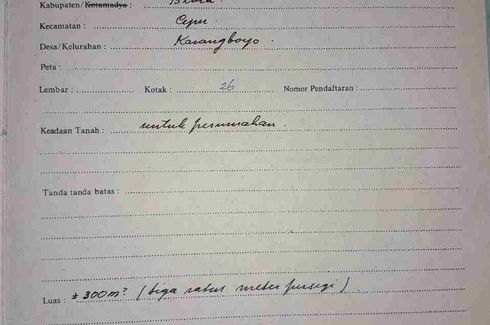 Kabupaten/Kotamadya : Blora
Kecamatan : Cepu
Desa/Kelurahan : Karangboyo
Peta :
Lembar : Kotak : 26 Nomor Pendaftaran :
Keadaan Tanah : untuk perumahan
Tanda tanda batas :
Luas : ± 300 m² (tiga ratus meter persegi)